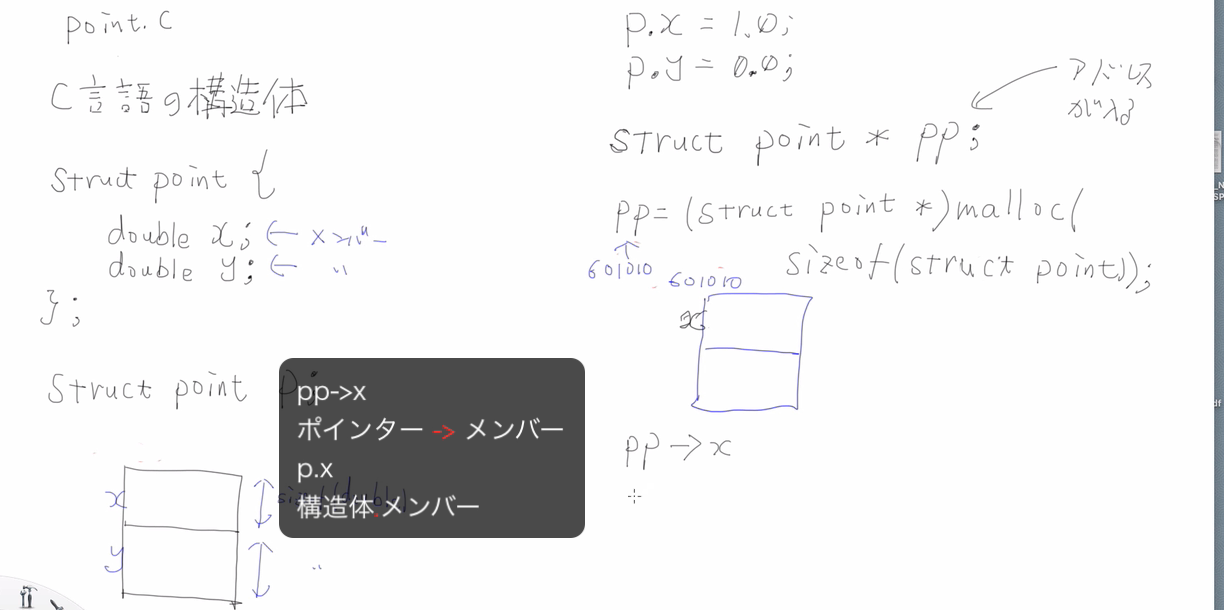 point.c
C言語の構造体
struct point {
double x; ← xメンバー
double y; ← 〃
};
struct point p;
x
y
〃
pp->x
ポインター -> メンバー
p.x
構造体.メンバー
p.x = 1.0;
p.y = 0.0;
アドレス
が入る
struct point * pp;
pp = (struct point *)malloc(
sizeof(struct point));
601010
601010
x
pp → x